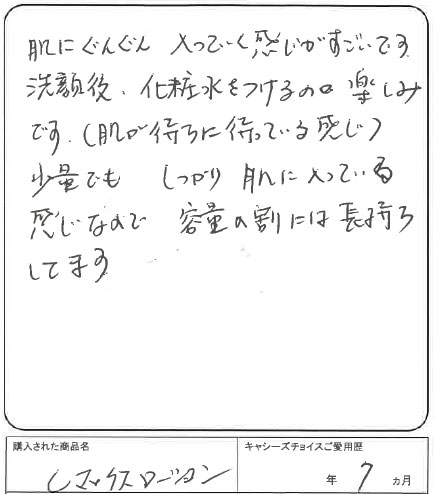 肌にぐんぐん 入っていく感じがすごいです
洗顔後、化粧水をつけるのは 楽しみ
です.(肌が待ちに待っている感じ)
少量でも しっかり 肌に入っている
感じなので 容量の割には長持ち
してます
購入された商品名
キャシーズチョイスご愛用歴
Lマックスローション
年 7 ヵ月